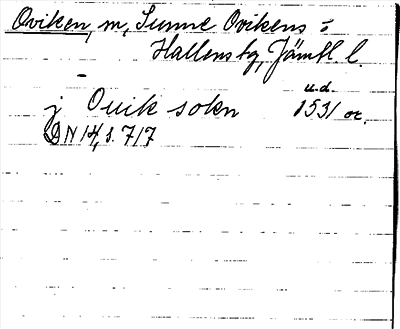 Oviken, m, Sunne Ovikens o
Hallens tg, Jämtl l.
u.d.
j Ouik sokn 1531 or.
DN 14, s. 717